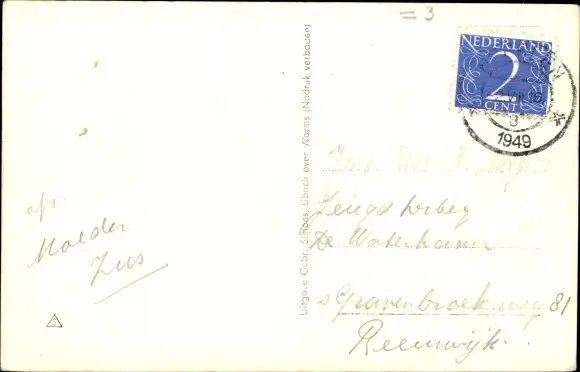 = 3
NEDERLAND
2
CENT
8
1949
Uitgave Gebr. Simons, Ubach over Worms (Nadruk verboden)
Jeugdherberg
De Waterhoen
s Gravenbroekweg 81
Reeuwijk.
Moeder
Zus